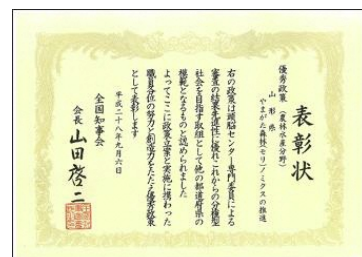 表彰状
優秀政策(農林水産分野)
山形県
やまがた森林モリノミクスの推進
右の政策は頭脳センター専門委員による
審査の結果先進性に優れこれからの分権型
社会を目指す取組として他の都道府県の
模範となるものと認められました
よってここに政策立案と実施に携わった
職員各位の努力と創造力をたたえ優秀政策
として表彰します
平成二十八年九月六日
全国知事会
会長 山田啓二